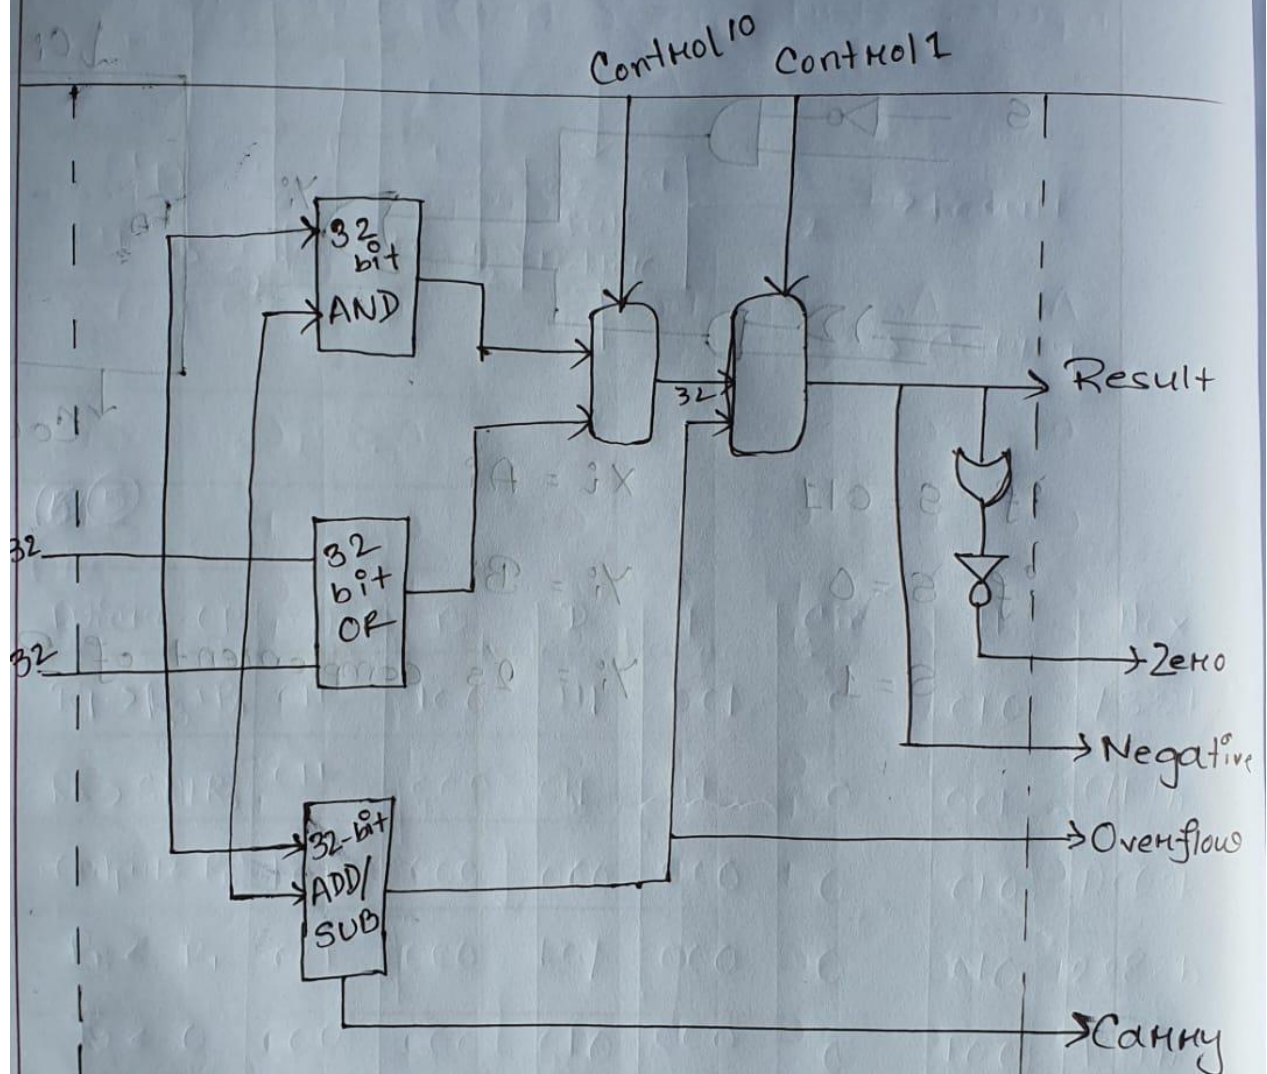 Control10
Control1
32
bit
AND
32
Result
32
32
bit
OR
32
Zero
32-bit
ADD/
SUB
Negative
Overflow
Carry